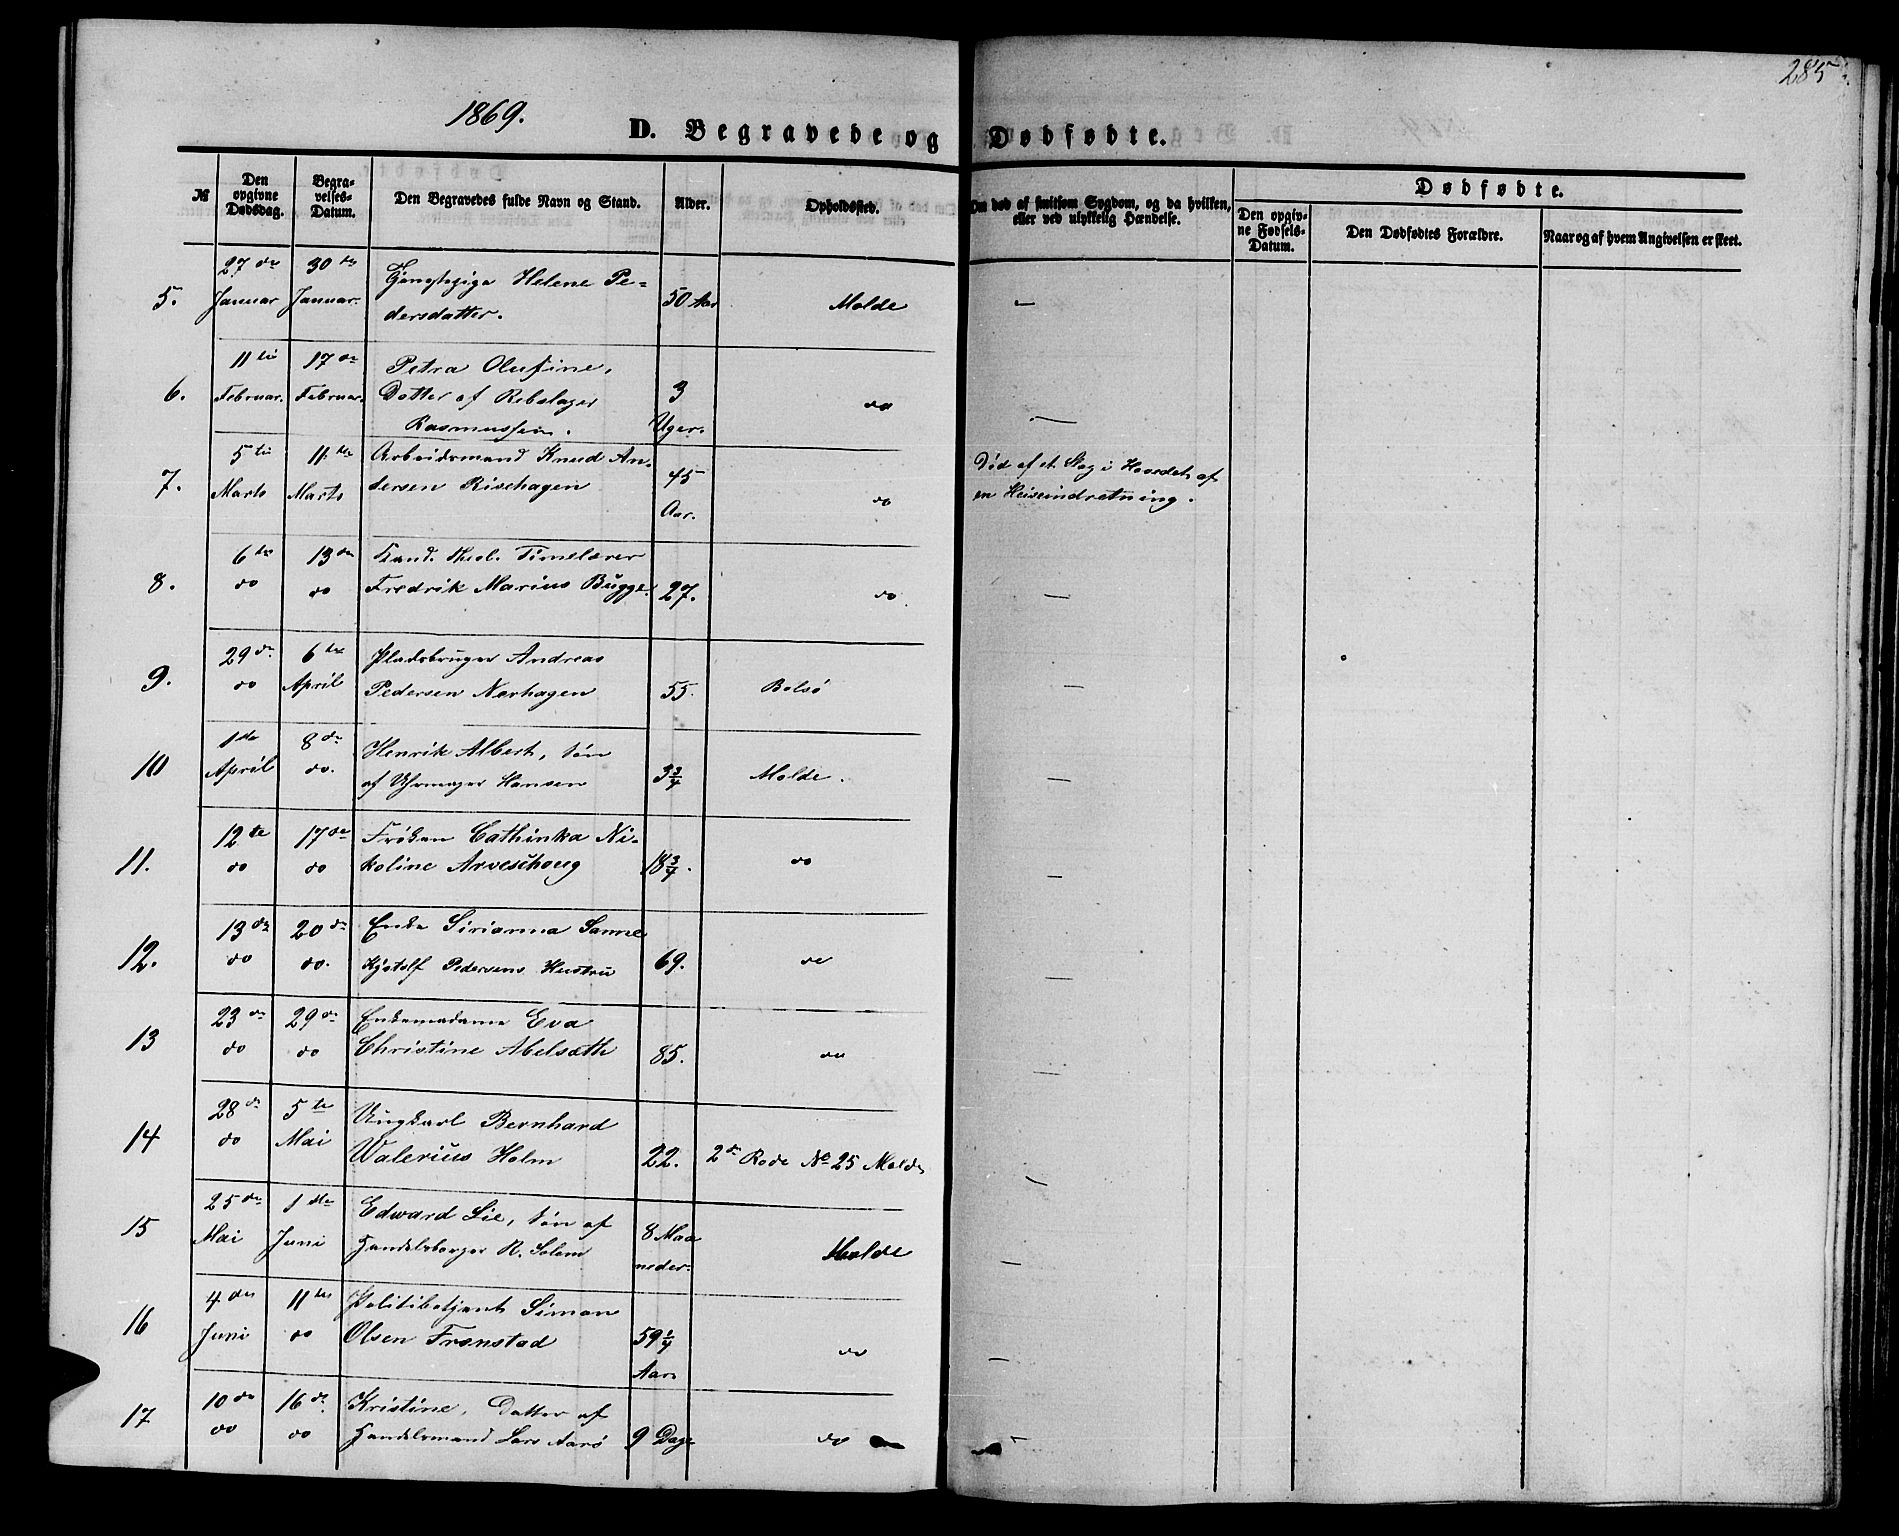 285
1869.
D. Begravede og Dødfødte.
№ Den opgivne Dødsdag. Begravelses-Datum. Den Begravedes fulde Navn og Stand. Alder. Opholdssted. Om død af smitsom Sygdom, og da hvilken, eller ved ulykkelig Hændelse. Dødfødte.
Den opgivne Fødsels-Datum. Den Dødfødtes Forældre. Naar og af hvem Angivelsen er skeet.
27de 30te Helene Pe-
5. Januar Januar. dersdatter. 50 Aar Molde —
11te 17de Petra Olufine,
6. Februar. Februar. Datter af Rebslager 3 do —
Rasmussen. Uger.
5te 11te Arbeidsmand Knud An- Død af et Slag i Hovedet af
7. Marts Marts dersen Risehagen 45 do en Heiseindretning.
Aar.
6te 13de Kand. theol. Timelærer
8. do do Fredrik Marius Bugge. 27. do. —
29de 6te Pladsbruger Andreas
9. do April Pedersen Nærhagen 55. Bolsø —
1ste 8de Henrik Albert, Søn
10 April do. af Uhrmager Hansen 3 3/4 Molde. —
12te 17de Frøken Cathinka Ni-
11. do do koline Arveschoug 18 3/4. do —
13de 20de Enke Sirianna Sanne
12. do do. Pedersens Hustru 69. do —
23de 29de Enkemadame Eva
13 do do Christine Abelsæth 85. do —
28de 5te Ungkarl Bernhard
14 do Mai Walerius Holm 22. 2de Rode No 25 Molde —
25de 1ste Edward Lie, Søn af
15 Mai Juni Handelsborger R. Solem 8 Maa- Molde —
neder.
4de 11te Politibetjent Simon
16 Juni do Olsen Frænstad 59 1/4 do —
Aar.
10de 16de Kristine, Datter af
17 do do Handelsmand Lars Aarø 9 Dage do —